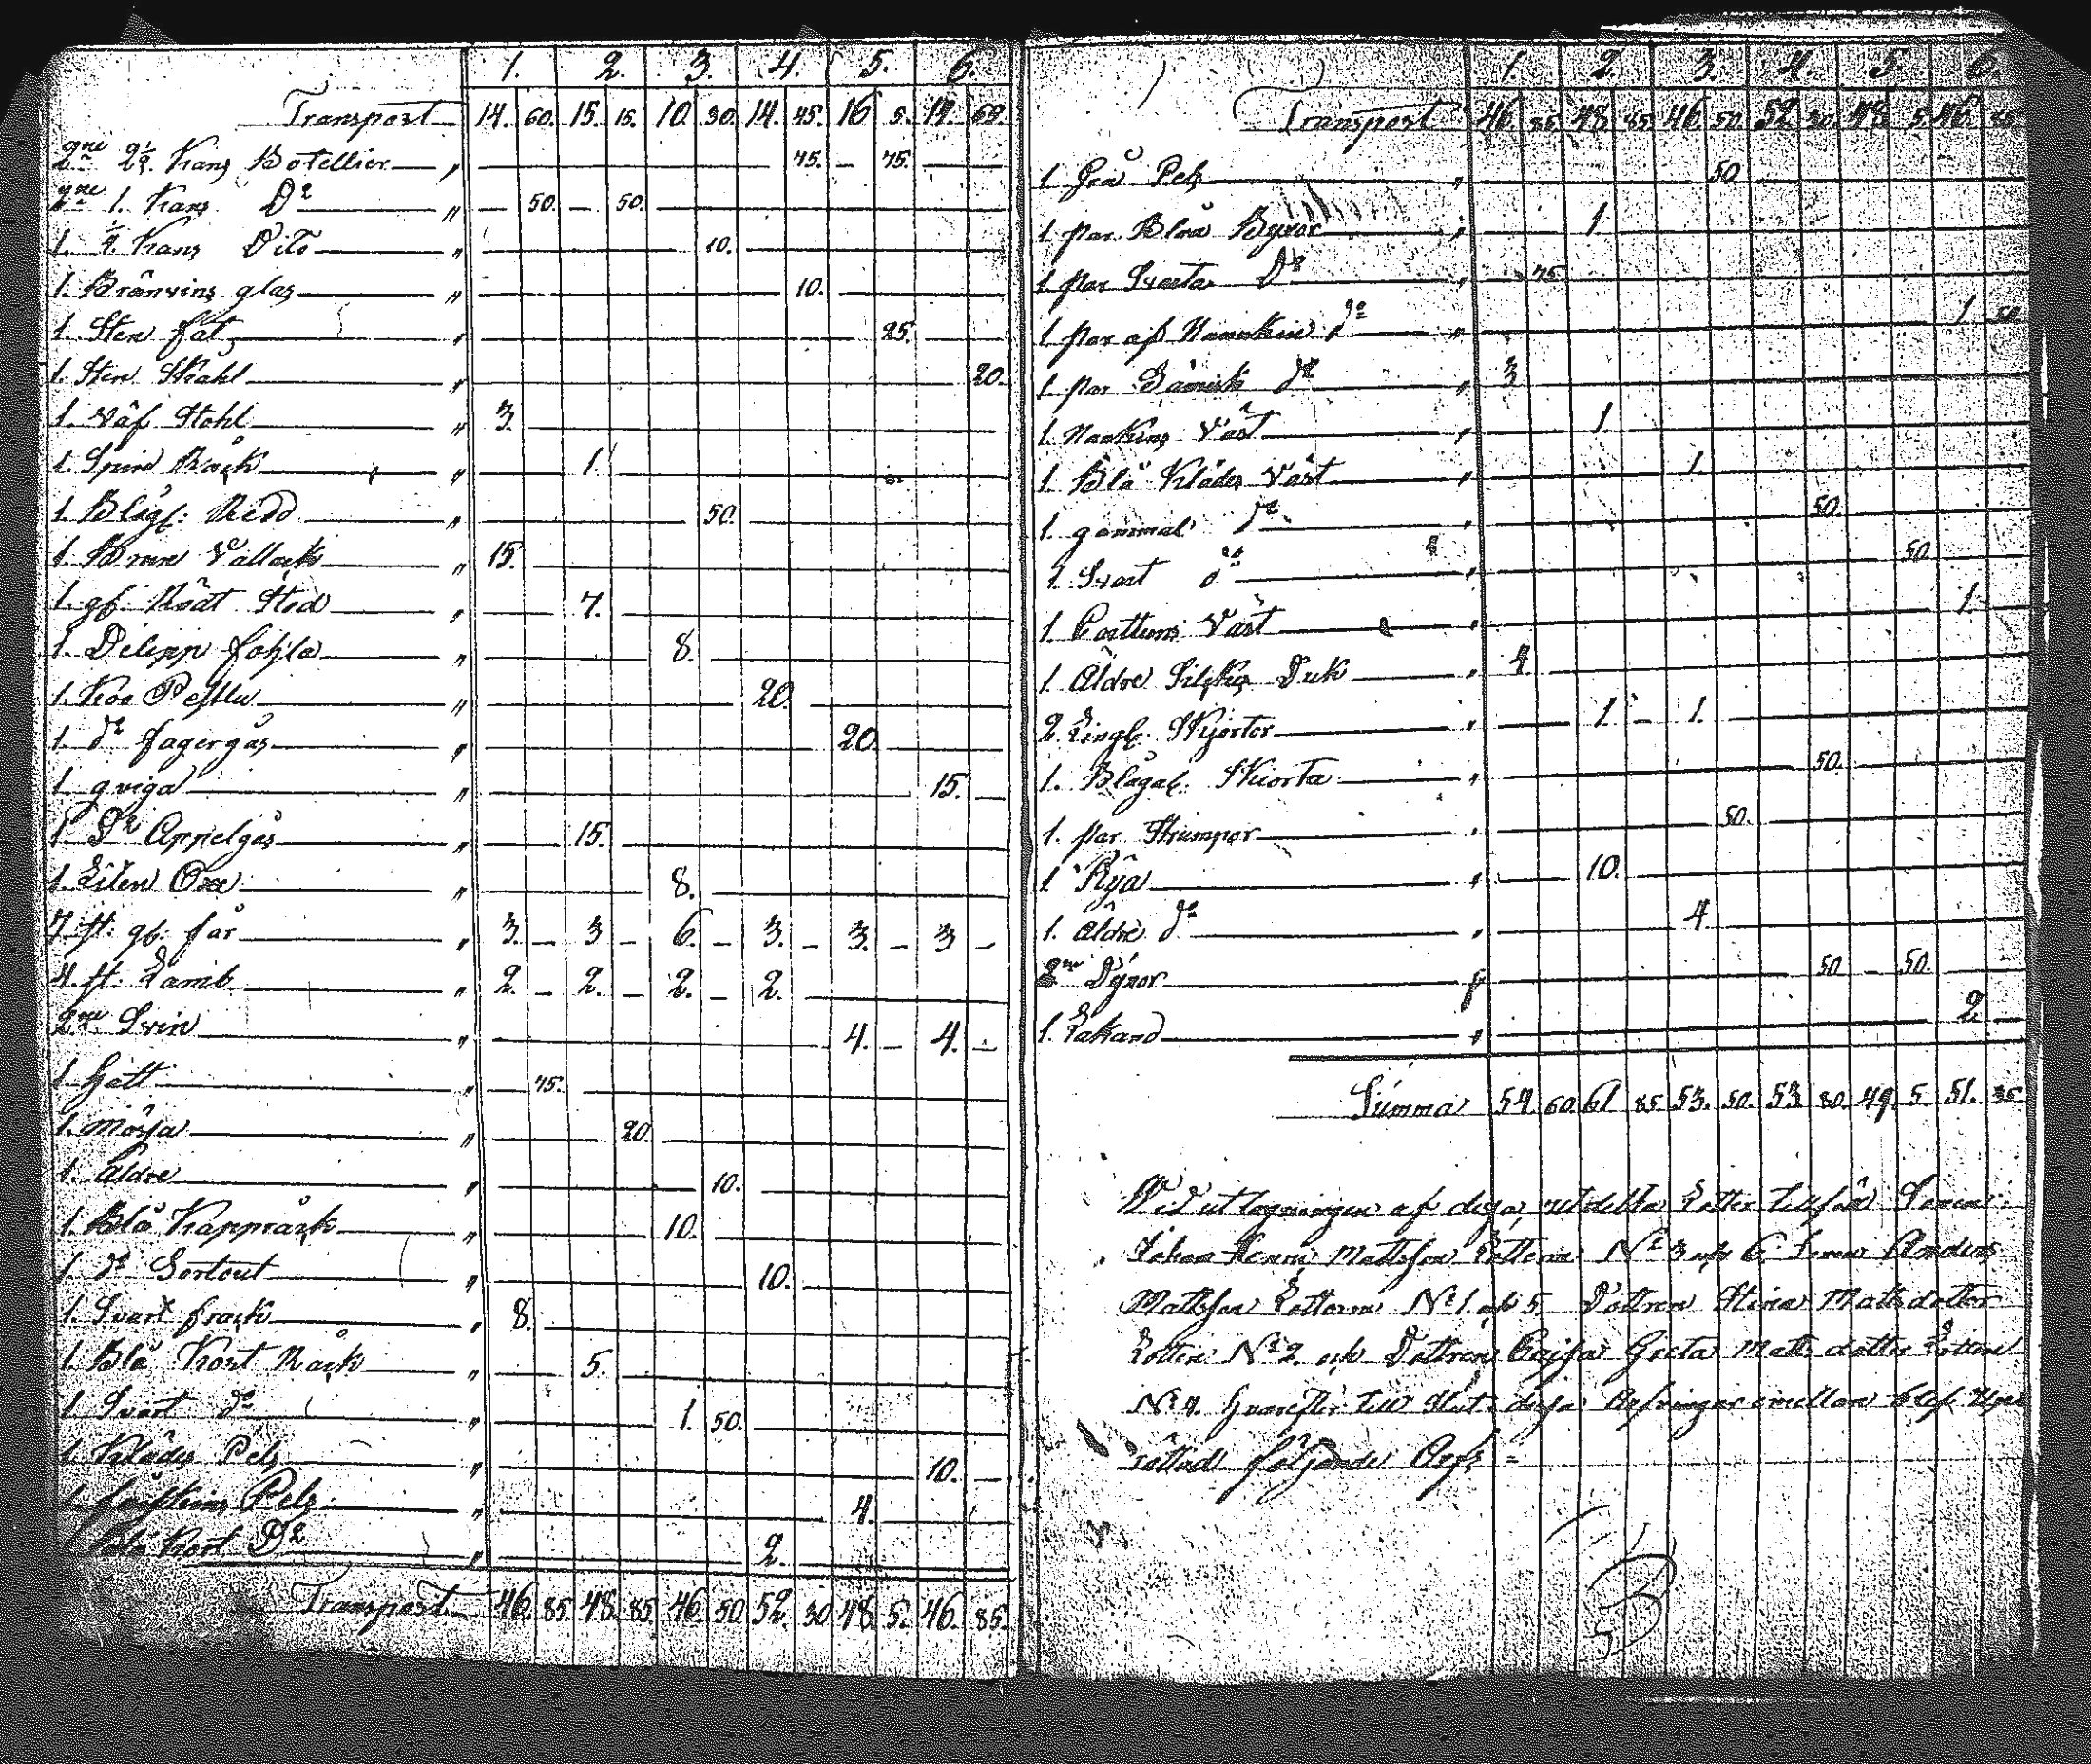 1. 2. 3. 4. 5. 6.
Transport 14. 60. 15. 15. 10. 30. 14. 45. 16 5. 14. 60.
2ne 2 1/2 Kans Botellier " 45. 45.
2ne 1. Kans Do " 50. 50.
1. 1/2 Kans Dito " 10.
1. Brânvins glas " 10.
1. Sten fat " 25.
1. Sten Skåhl " 20.
1. Väf Stohl " 3.
1. Spin Råck " 1.
1. Blågl: Redd " 50.
1. Brun Vallack " 15.
1. gf: Rödt Stod " 7.
1. Dilipp fohla " 8.
1. Koo " 20.
1. do fagergås " 20.
1. qviga " 15.
1. Do Appelgås " 15.
1. Liten Oxe " 8.
7. st: gf: får " 3. 3 6. 3. 3. 3
4. st: Lamb " 2. 2. 2. 2.
2ne Svin " 4. 4.
1. Hatt " 75.
1. Mössa " 20.
1. Äldre " 10.
1. Blå Kappråck " 10.
1. do Sortout " 10.
1. Svart frack " 8.
1. Blå Kort Råck " 5.
1 Svart do " 1. 50.
1. Klädes Pels " 10.
1. Pels " 4.
1 Blå Kort Do " 2.
Transport 46. 85. 48. 85. 46. 50 52. 30 48. 5. 46. 85.
1. 2. 3. 4. 5. 6.
Transport 46. 85. 48. 85. 46. 50. 52. 30. 48. 5. 46. 85
1 Grå Pels " 50
1 par Blåa Byxor " 1.
1 par Svarta Do " 75.
1 par af Nannkin do " 1. 50
1. par do " 3
1 Nankins Väst " 1.
1. Blå Klädes Väst " 1.
1. gammal do " 50.
1 Svart do " 50
1. Cattuns Väst " 1.
1 Äldre Silkes Duk " 4.
2. Lingf: Skjortor " 1. 1.
1. Blågal: Skiorta " 50.
1. par Strumpor " 50.
1 Rya " 10.
1. Äldre do " 4
2ne Dynor " 50 50.
1. Lakand " 2.
Summa 54. 60. 61 85 53. 50. 53. 80. 49. 5. 51. 35
Vid utlagningen af dessa utdelta Lotter tillföll Sonen
Johan Henric Mattsson Lotterne No 3 och 6. Sonen Anders
Mattsson Lotterne No 1 och 5. Dottren Stina Mattsdotter
Lotten No 2. och Dottren Caisa Greta Matts dotter Lotten
No 4. Hvarefter till Slut dessa Arfvingar emellan blef Upp
rättad följande Arfs =